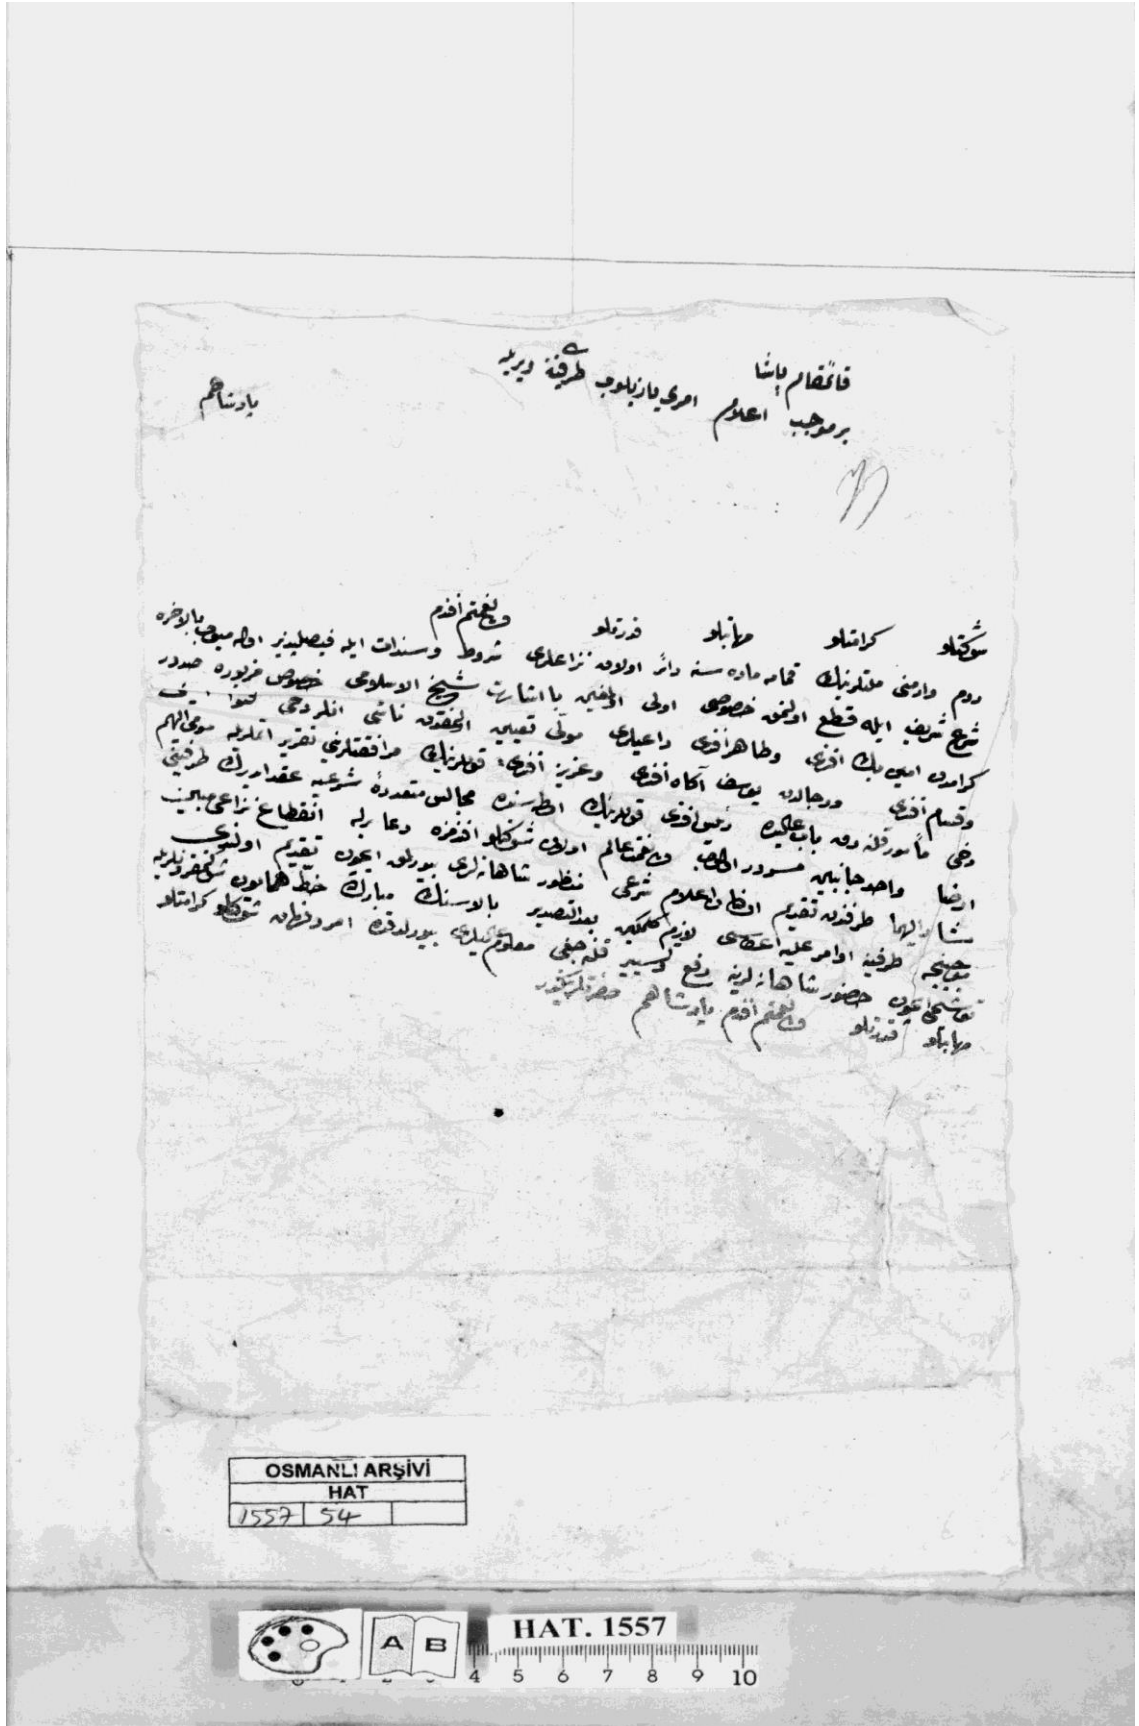 قائمقام پاشا
بر موجب اعلام امرى يازيلوب طرفينه ويريله
پادشاهم
شوكتلو كرامتلو مهابتلو قدرتلو ولى نعمتم افندم
روم وارمنى ملتلرينك قمامه ماده سنه دائر اولان نزاعلرى شروط وسندات ايله فيصلپذير بالاخره
شرع شريف ايله قطع اولنمق خصوصى اولى باشارت شيخ الاسلامى خصوص مزبوره صدور
كرامدن امين بك افندى وطاهر افندى داعيلرى مولى تعيين ناشى انلر دخى
وقسام افندى ورجالدن يوسف آكاه افندى وعزيز افندى قوللرينك مرافقتلرينى تقرير ايتملريله مومى اليهم
دخى مأمور قلنه رق باب عاليده رئيس افندى قوللرينك اوطه سنده مجالس متعدده شرعيه عقد ايدرك طرفينى
ارضا واحد جانبين مسرور ولى نعمت عالم اولان شوكتلو افندمزه دعا برله انقطاع نزاعى مبين
مشار اليهما طرفندن تقديم اولنان اعلام شرعى منظور شاهانه لرى بيورلمق ايچون تقديم اولندى
موجبنجه طرفينه اوامر عليه اعطاسى لازم كلمكين بعد التصدير بالاسنك مبارك خط همايون شوكتمقرونلريله
توشيحى ايچون حضور شاهانه لرينه رفع وتسيير قلنه جغى معلوم عاليلرى بيورلدقده امر وفرمان شوكتلو كرامتلو
مهابتلو قدرتلو ولى نعمتم افندم پادشاهم حضرتلرينكدر
OSMANLI ARŞİVİ
HAT
1557 54
A B
HAT. 1557
4 5 6 7 8 9 10